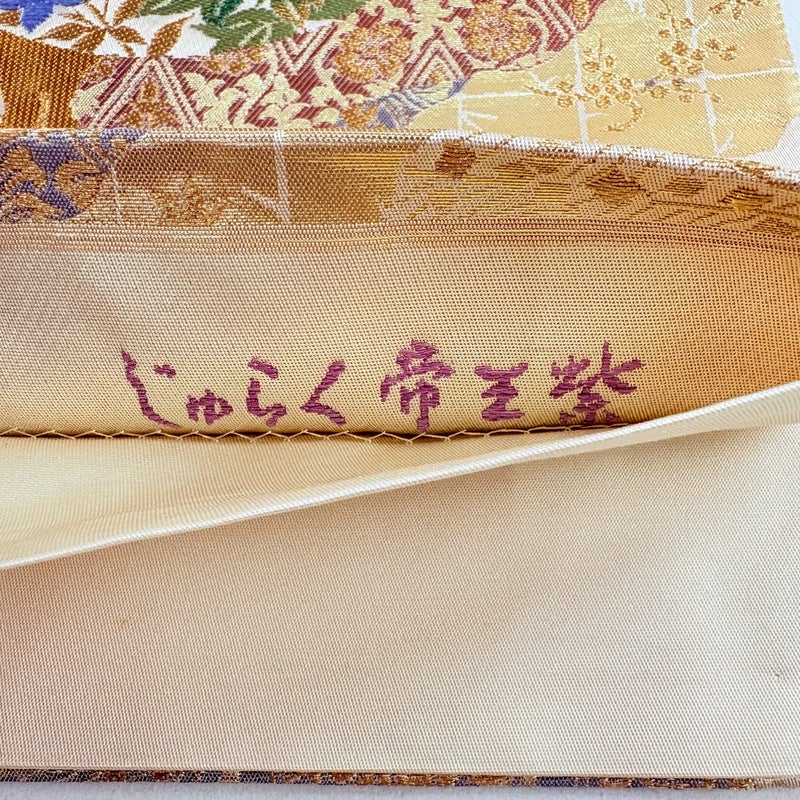 じゅらく帝王紫